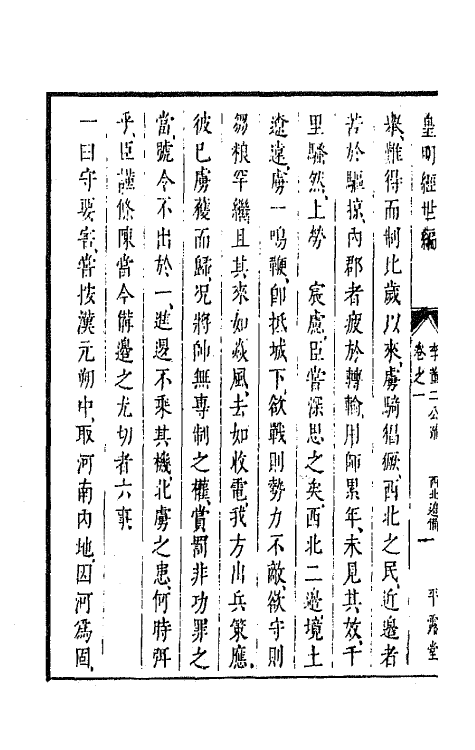 皇明經世編
李黃二公疏
卷之一
西北邊備 一
平露堂
衆惟得而制比歲以來虜騎猖厥西北之民近邊者
苦於驅掠內郡者疲於轉輸用師累年未見其效千
里騷然上勞 宸慮臣嘗深思之矣西北二邊境土
遼遠虜一鳴鞭卽抵城下欲戰則勢力不敵欲守則
芻粮罕繼且其來如焱風去如收電我方出兵策應
彼已虜獲而歸況將帥無專制之權賞罰非功罪之
當號令不出於一進退不乘其機北虜之患何時弭
乎臣謹條陳當今備邊之尤切者六事
一曰守要害嘗按漢元朔中取河南內地因河爲固